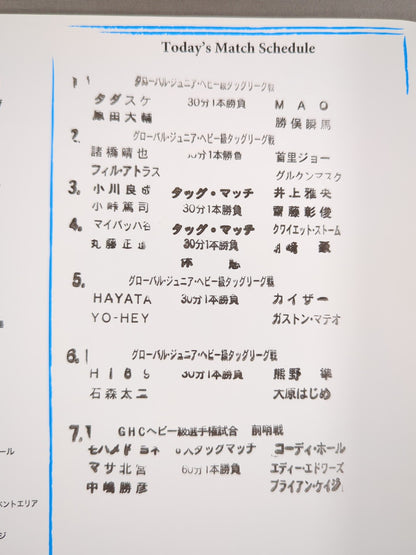 Today's Match Schedule
1. グローバル・ジュニア・ヘビー級タッグリーグ戦
タダスケ 30分1本勝負 MAO
原田大輔 勝俣瞬馬
2. グローバル・ジュニア・ヘビー級タッグリーグ戦
諸橋晴也 30分1本勝負 首里ジョー
フィル・アトラス グルケンマスク
3. 小川良成 タッグ・マッチ 井上雅央
小峠篤司 30分1本勝負 齋藤彰俊
4. マイバッハ谷 タッグ・マッチ クワイエット・ストーム
丸藤正道 30分1本勝負
休憩
5. グローバル・ジュニア・ヘビー級タッグリーグ戦
HAYATA 30分1本勝負 カイザー
YO-HEY ガストン・マテオ
6. グローバル・ジュニア・ヘビー級タッグリーグ戦
Hi69 30分1本勝負 熊野準
石森太二 大原はじめ
7. GHCヘビー級選手権試合 前哨戦
モハメド ヨネ 6人タッグマッチ コーディ・ホール
マサ北宮 60分1本勝負 エディ・エドワーズ
中嶋勝彦 ブライアン・ケイジ
ール
ベントエリア
ジ